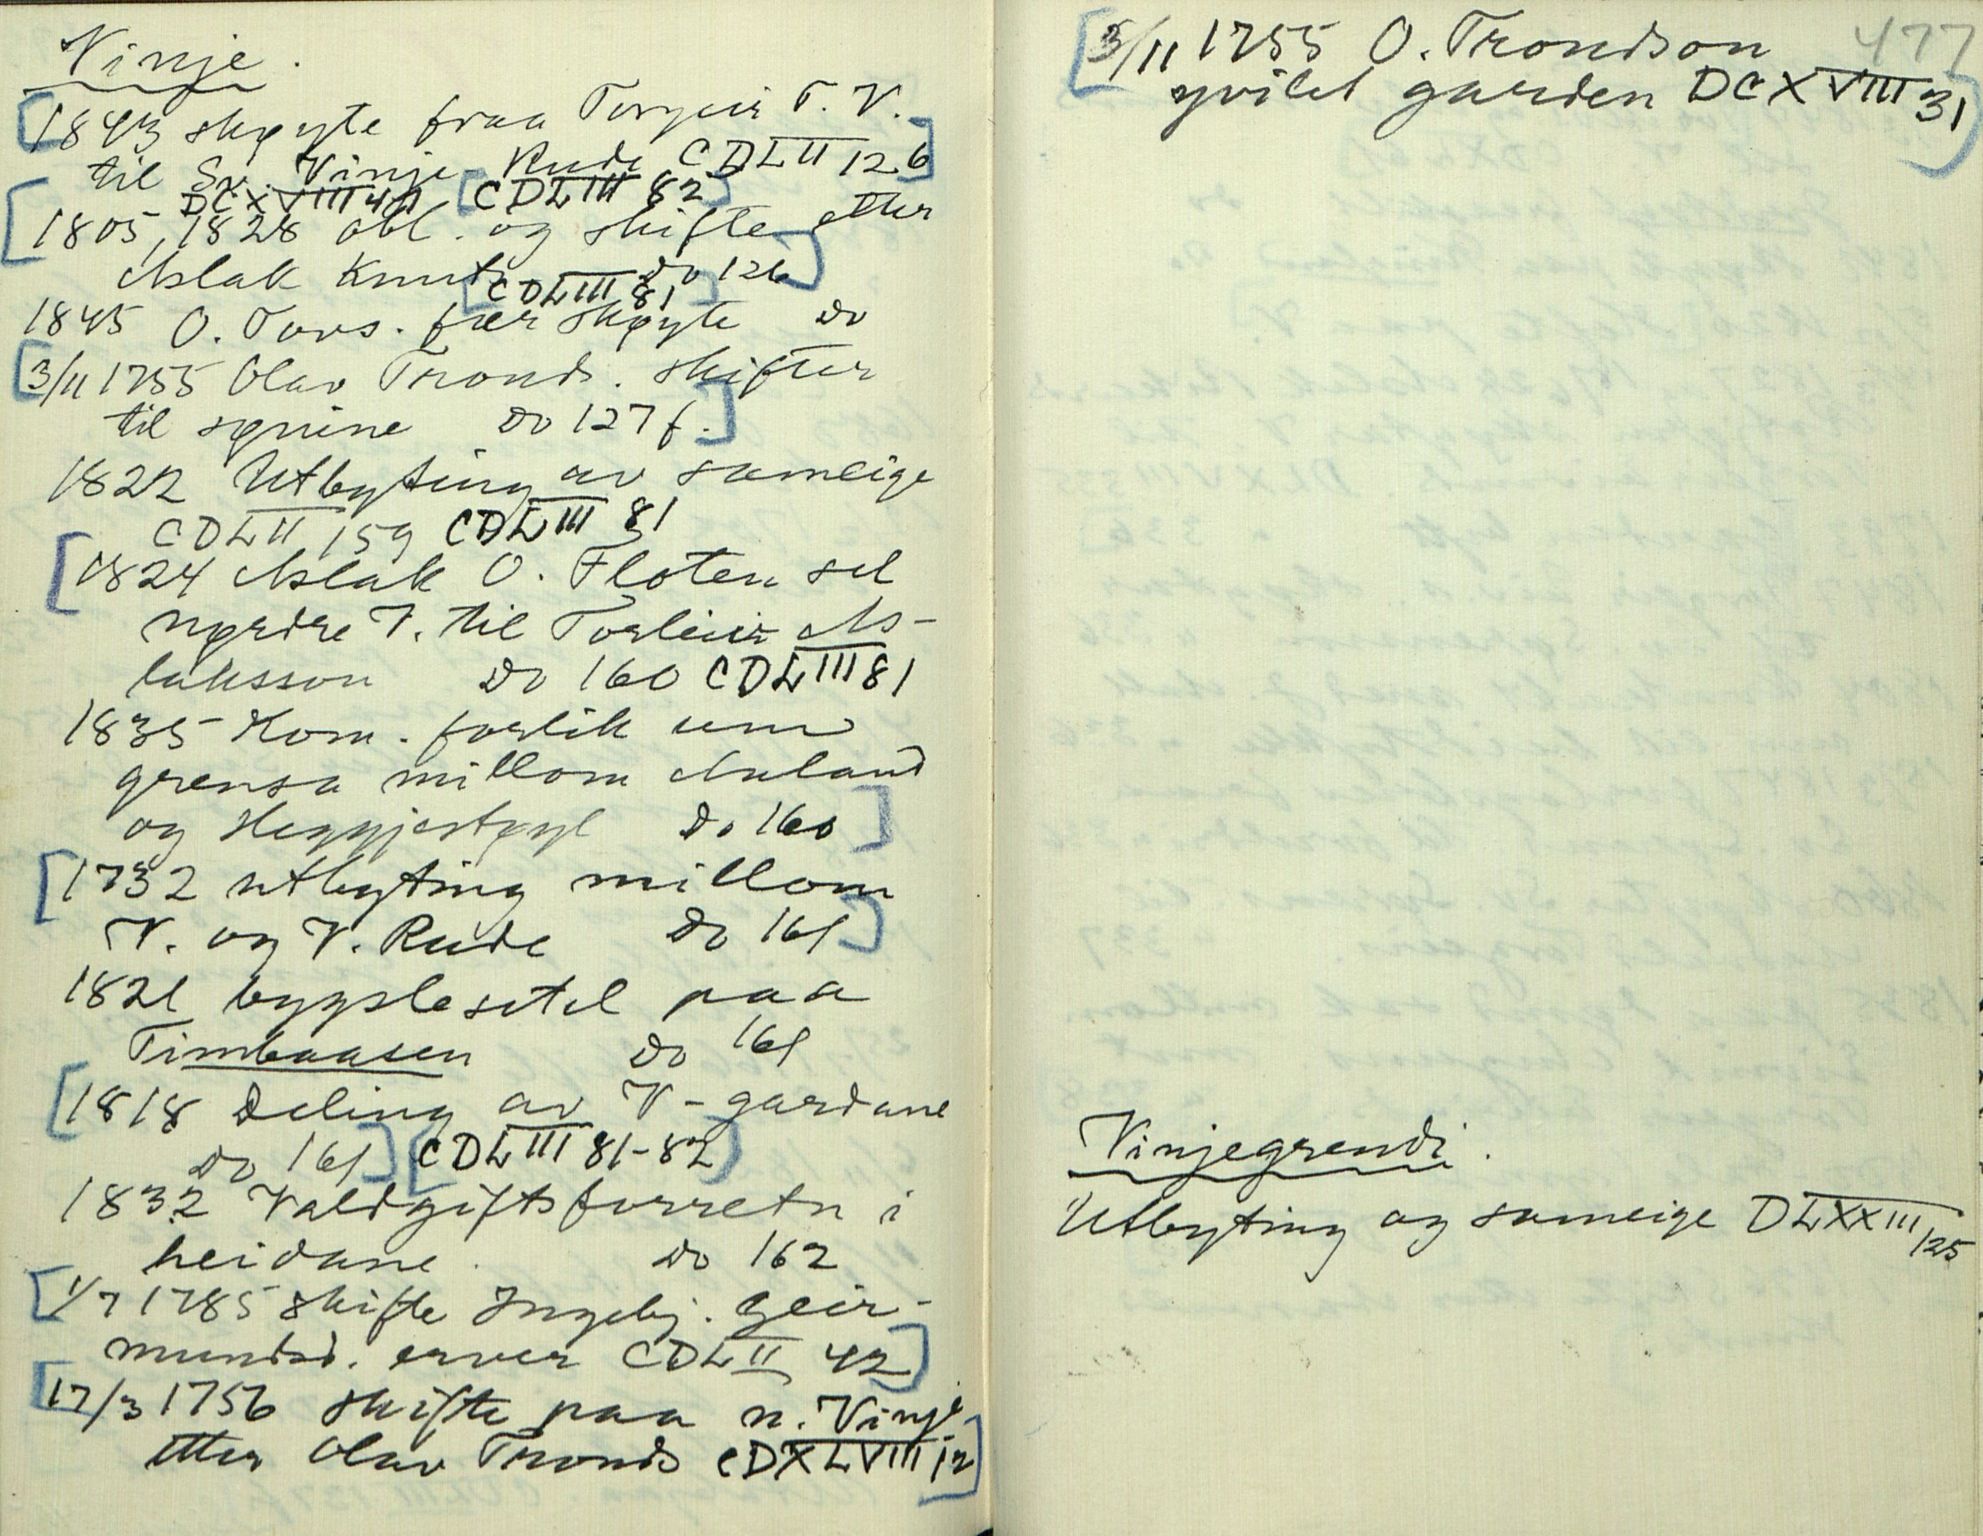 Vinje.
[1843 skøyte fraa Torgeir T. V.
til Sv. Vinje Rude CDLII 126]
DCXVIII 40 [CDLIII 82]
[1805, 1828 obl. og skifte etter
Aslak Knuts. Do 126]
[CDLIII 81]
1845 O. Tovs. fær skøyte Do
[3/11 1755 Olav Tronds. skifter
til sønine Do 127 f.]
1822 Utbyting av sameige
CDLII 159 CDLIII 81
[1824 Aslak O. Floten sel
nørdre V. til Torleiv As-
laksson Do 160 CDLIII 81
1835 Kom. forlik um
grensa millom Auland
og Heggjestøyl Do 160]
[1732 utbyting millom
V. og V. Rude Do 161]
1821 bygslesetel paa
Timbaasen Do 161
[1818 Deling av V-gardane
Do 161] [CDLIII 81-82]
1832 Valdgiftsforretn i
heidane Do 162
[1/7 1785 skifte Ingebj. Geir-
mundsd. erver CDLII 42]
[17/3 1756 skifte paa n. Vinje
etter Olav Tronds CDXLVIII 12]
477
[3/11 1755 O. Trondson
gviler garden DCXVIII 31]
Vinjegrendi.
Utbyting og sameige DLXXIII 125